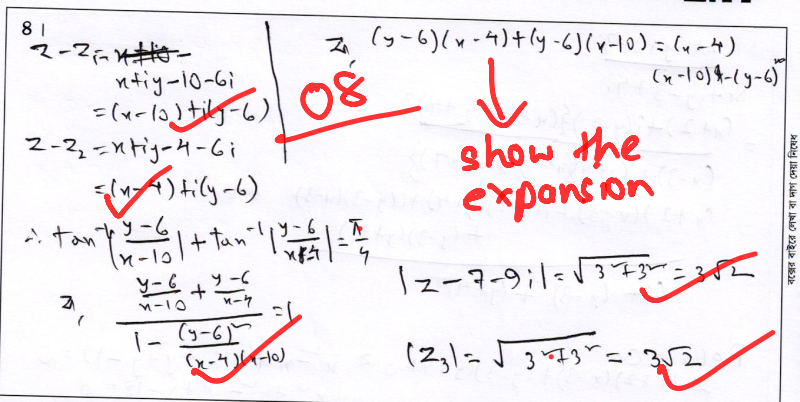 81
z - z₁ = x + iy - 10 - 6i
= (x-10) + i(y-6)
z - z₂ = x + iy - 4 - 6i
= (x-4) + i(y-6)
∴ tan⁻¹ |y-6 / x-10| + tan⁻¹ |y-6 / x-4| = π/4
বা, (y-6 / x-10 + y-6 / x-4) / (1 - (y-6)² / (x-4)(x-10)) = 1
বা, (y-6)(x-4) + (y-6)(x-10) = (x-4)
(x-10) - (y-6)²
08
show the
expansion
|z - 7 - 9i| = √(3² + 3²) = 3√2
|z₃| = √(3² + 3²) = 3√2
বক্সের বাইরে লেখা বা দাগ দেয়া নিষেধ